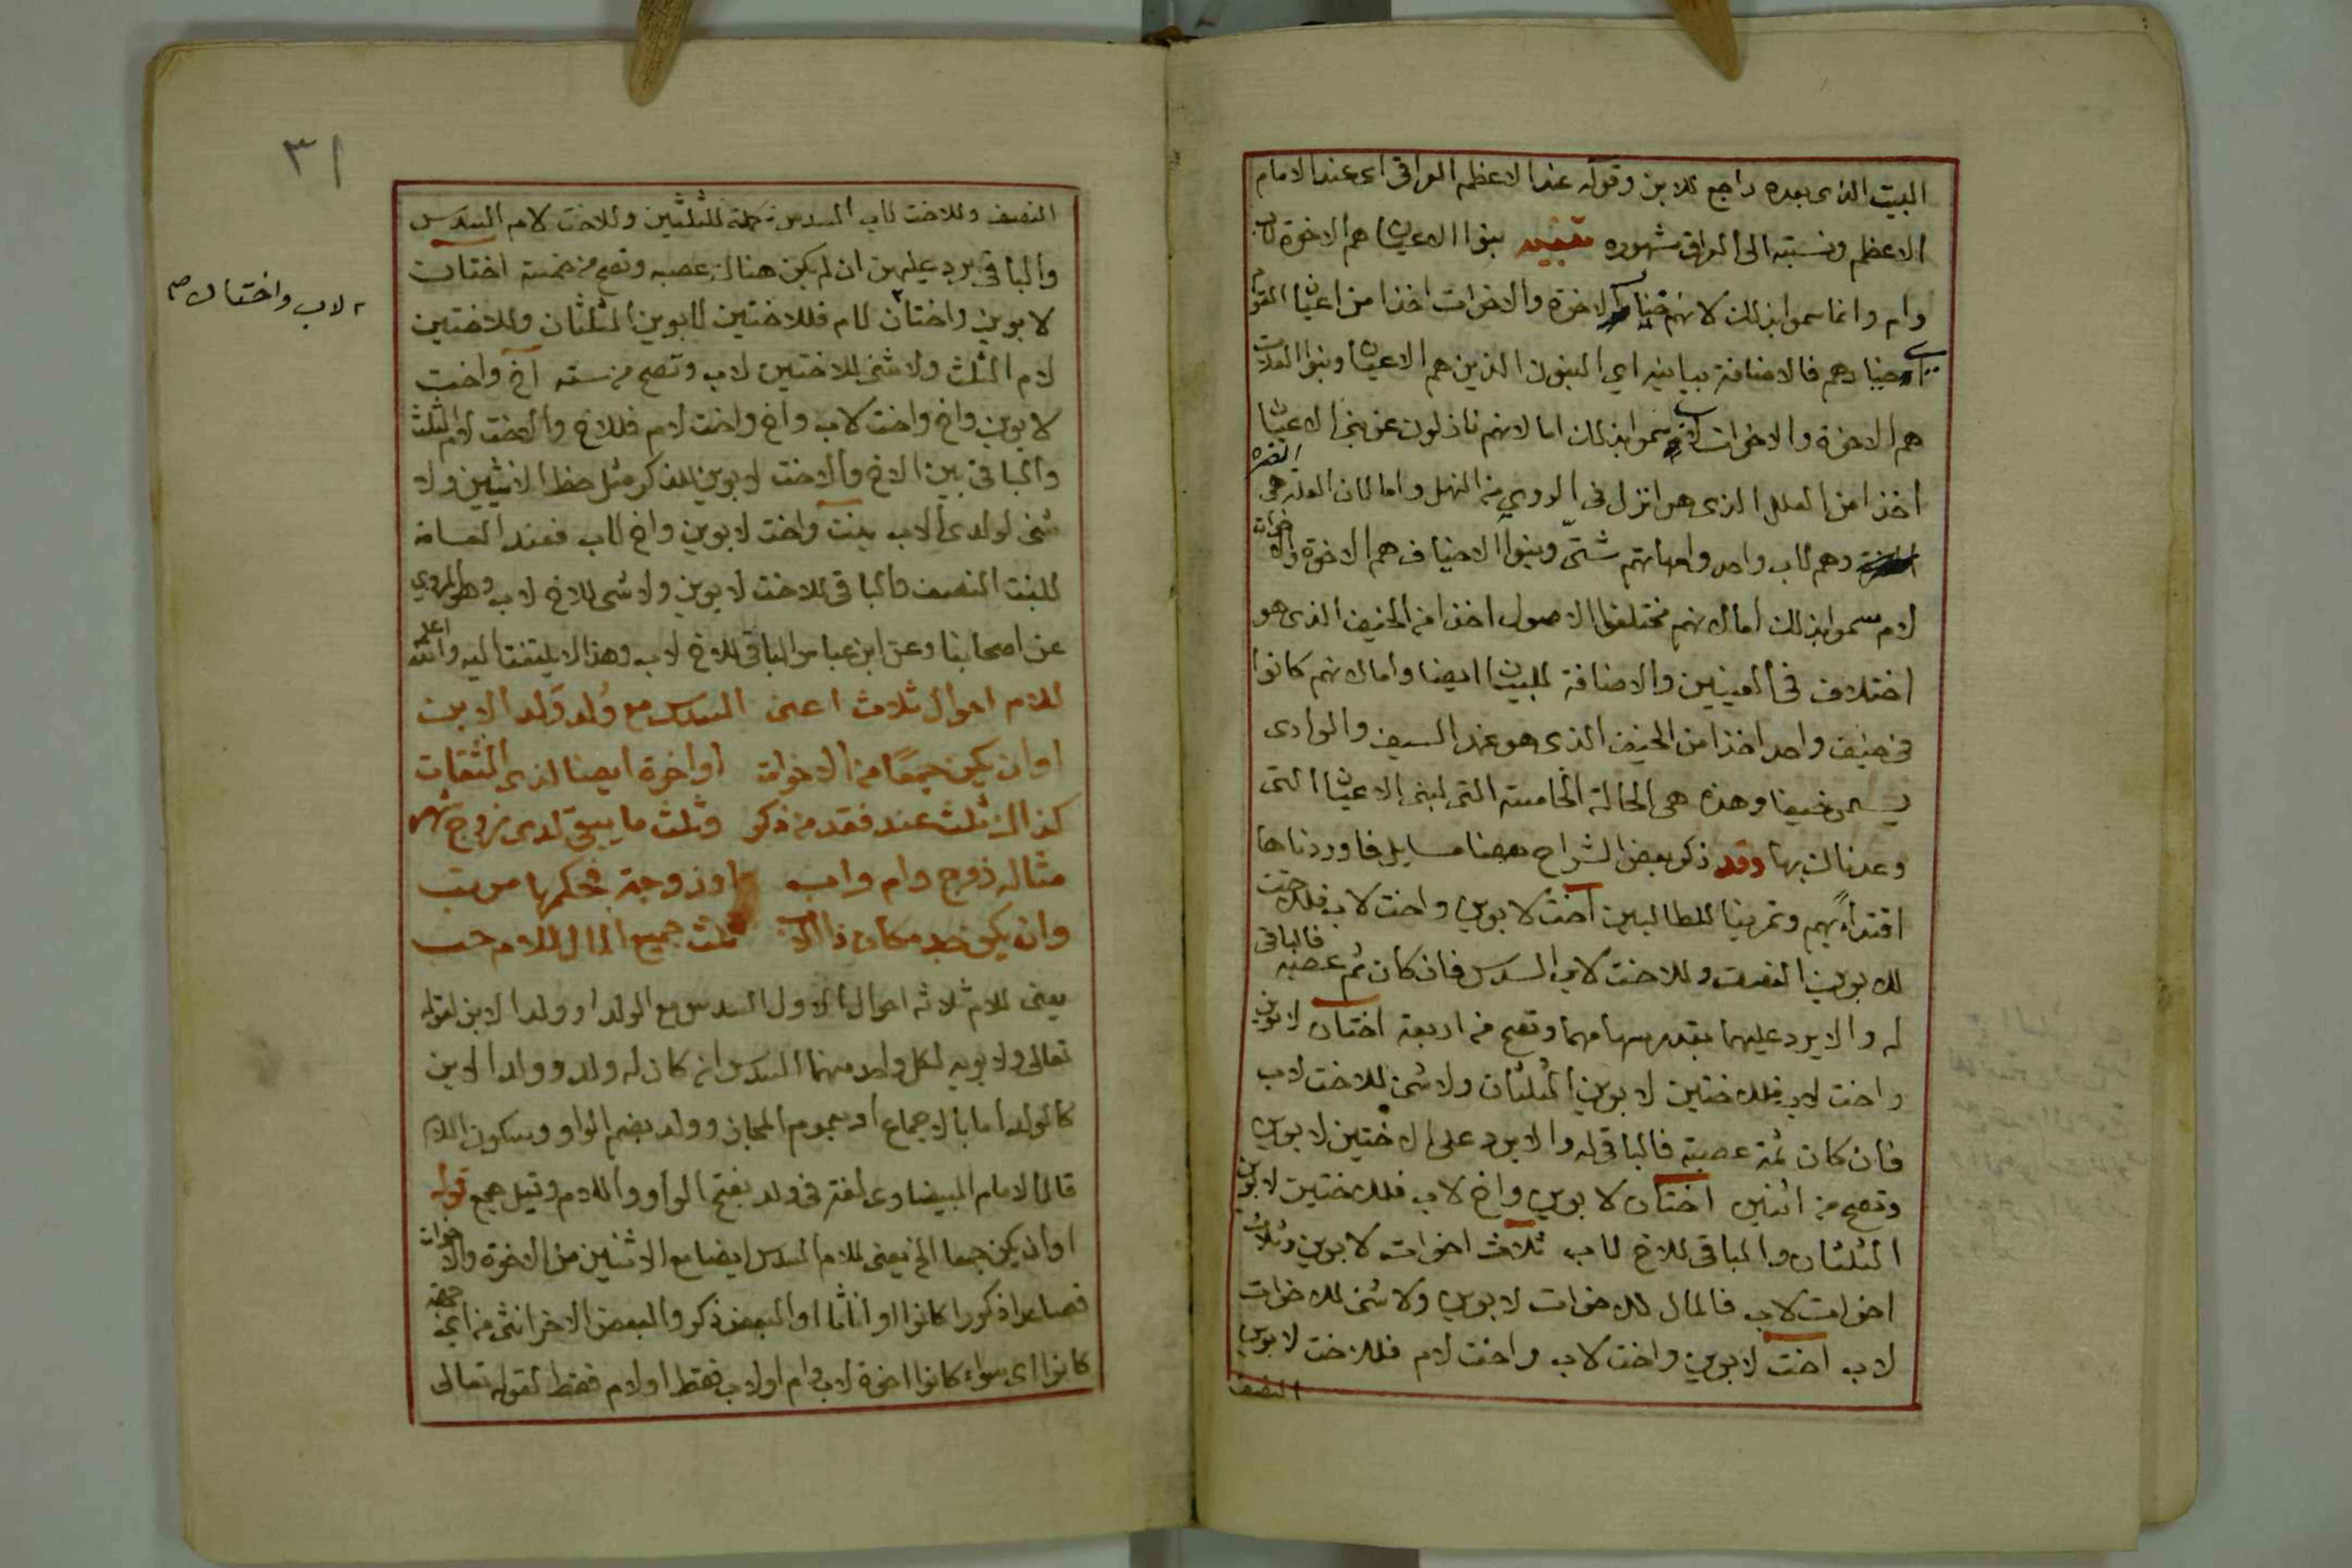 البيت الذى بعده راجع للابن وقوله عند الاعظم العراقى اى عند الامام
الاعظم ونسبته الى العراق مشهوره تنبيه بنوا الاعيان هم الاخوة لاب
وام وانما سموا بذلك لانهم خيار الاخوة والاخوات اخذا من اعيان القوم
اى خيارهم فالاضافة بيانيه اي البنون الذين هم الاعيان وبنوا العلات
هم الاخوة والاخوات لاب سموا بذلك اما لانهم نازلون عن بنى الاعيان
اخذا من العلل الذى هو انزل فى الروي من النهل واما لان العله هى الضره
وهم لاب واحد وامهاتهم شتى وبنوا الاخياف هم الاخوة والاخوات
لام سموا بذلك اما لانهم مختلفوا الاصول اخذا من الخيف الذى هو
اختلاف فى العينين والاضافة للبيان ايضا واما لانهم كانوا
فى خيف واحد اخذا من الخيف الذى هو غمد السيف والوادى
يسمى خيفا وهذه هى الحالة الخامسة التى لبنى الاعيان التى
وعدناك بها وقد ذكر بعض الشراح بعضا مسايل فاوردناها
اقتداءً بهم وتمرينا للطالبين اخت لابوين واخت لاب فللاخت
لابوين النصف وللاخت لاب السدس فان كان ثم عصبه فالباقى
له والا يرد عليهما بقدر سهامهما وتصح من اربعة اختان لابوين
واخت لاب فللاختين لابوين الثلثان ولا شئ للاخت لاب
فان كان ثمة عصبة فالباقى له والا يرد على الاختين لابوين
وتصح من اثنين اختان لابوين واخ لاب فللاختين لابوين
الثلثان والباقى للاخ لاب ثلاث اخوات لابوين وثلاث
اخوات لاب فالمال للاخوات لابوين ولا شئ للاخوات
لاب اخت لابوين واخت لاب واخت لام فللاخت لابوين
النصف
٣١
النصف وللاخت لاب السدس تكملة للثلثين وللاخت لام السدس
والباقى يرد عليهن ان لم يكن هناك عصبه وتصح من خمسة اختان
لابوين واختان لام فللاختين لابوين الثلثان وللاختين
لاب واختان صح
لام الثلث ولا شئ للاختين لاب وتصح من سته اخ واخت
لابوين واخ واخت لاب واخ واخت لام فللاخ والاخت لام الثلث
والباقى بين الاخ والاخت لابوين للذكر مثل حظ الانثيين ولا
شئ لولدى الاب بنت واخت لابوين واخ لاب فعند العامة
للبنت النصف والباقى للاخت لابوين ولا شئ للاخ لاب وهو المروي
عن اصحابنا وعن ابن عباس الباقى للاخ لاب وهذا لا يلتفت اليه والله اعلم
للام احوال ثلاث اعنى السدس مع وُلد وَلد الابن
او ان يكن جمعًا من الاخوات او اخوة ايضا لذى الثقات
كذاك ثلث عند فقد من ذكر وثلث ما يبقى لدى زوج شهر
مثاله زوج وام واب او زوجة فحكمها مرتب
وان يكن جد مكان ذا الاب ثلث جميع المال للام حب
يعنى للام ثلاثه احوال الاول السدس مع الولد او ولد الابن لقوله
تعالى ولابويه لكل واحد منهما السدس ان كان له ولد وولد الابن
كالولد اما بالاجماع او بعموم المجاز وولد بضم الواو وسكون اللام
قال الامام البيضاوى لغة فى ولد بفتح الواو واللام وقيل جمع قوله
او ان يكن جمعا الخ يعنى للام السدس ايضا مع الاثنين من الاخوة والاخوات
فصاعدا ذكورا كانوا او اناثا او البعض ذكر والبعض الاخر انثى من اى جهة
كانوا اى سواء كانوا اخوة لاب وام او لاب فقط او لام فقط لقوله تعالى